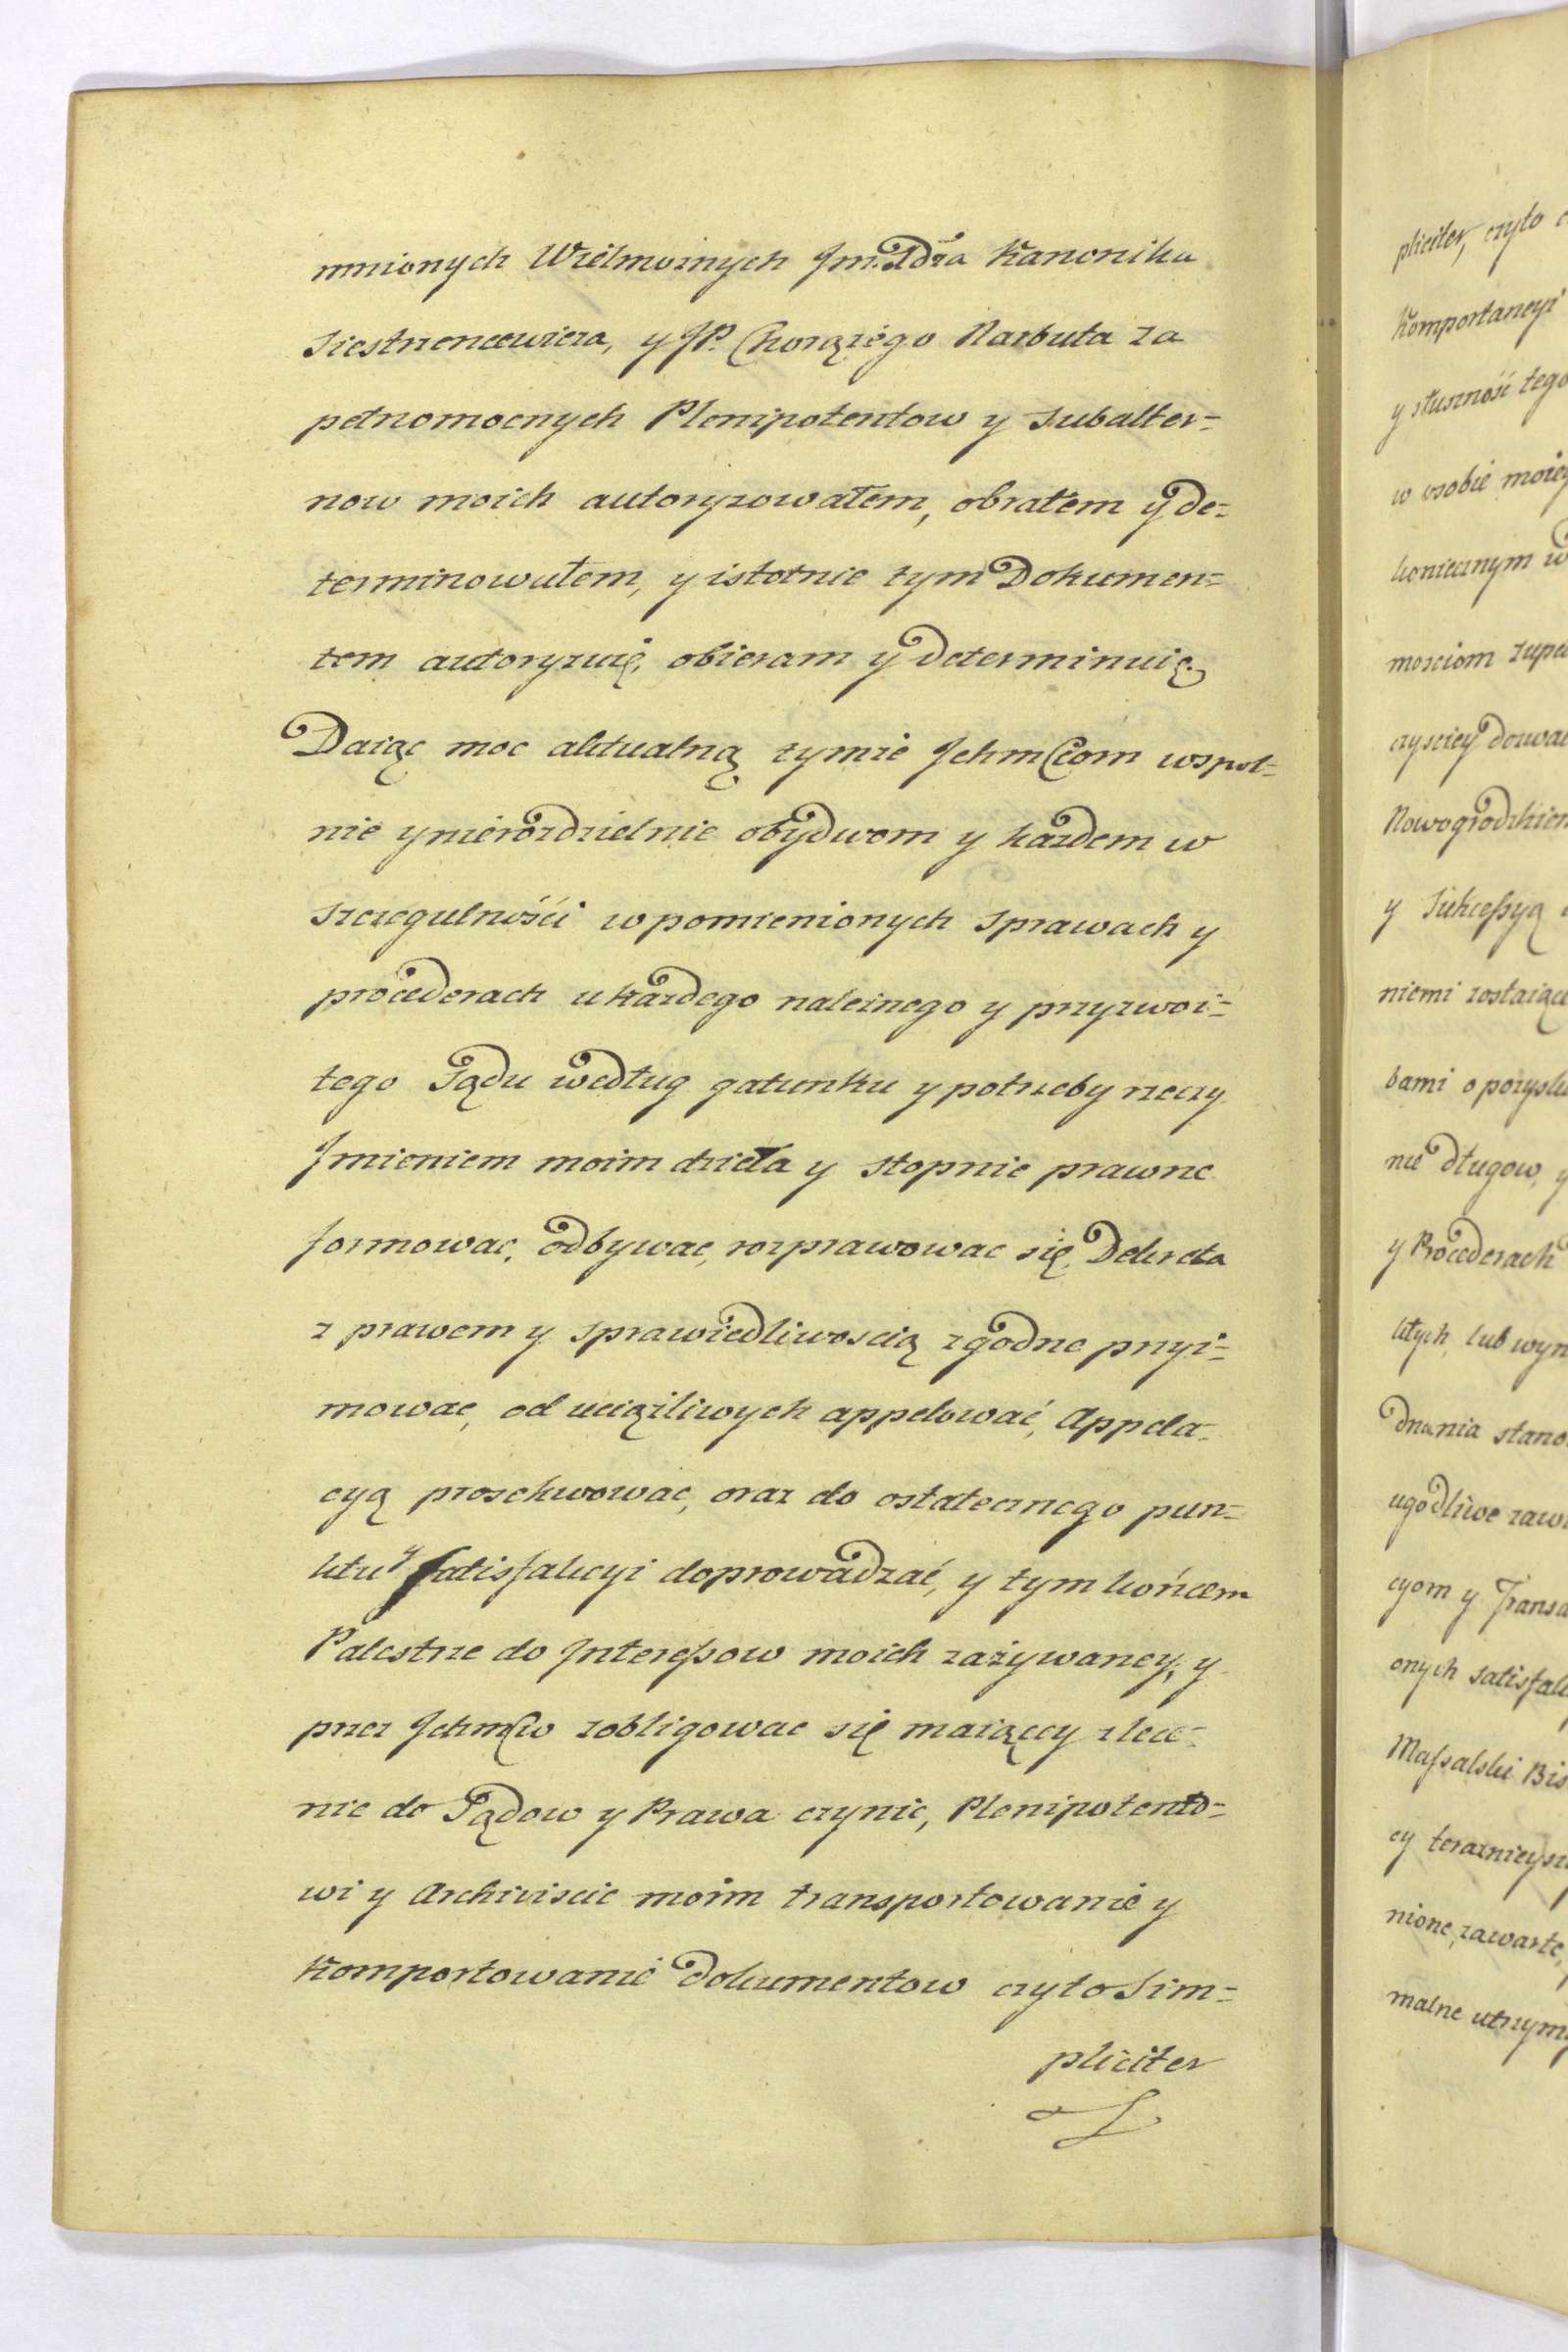 mnionych Wielmoznych Jm. Xdza Kanonika
Siestrzencewicza, y JP. Chorązego Narbuta za
pełnomocnych Plenipotentow y Subalter=
now moich autoryzowałem, obrałem y de=
terminowałem, y istotnie tym Dokumen=
tem autoryzuię, obieram y determinuię.
Daiąc moc aktualną tymże Jchmściom wspol=
nie y nierozdzielnie obydwom y kazdem w
szczegulności w pomienionych sprawach y
procederach u kazdego naleznego y przyzwoi=
tego Sądu według gatunku y potrzeby rzeczy
Jmieniem moim dzieła y stopnie prawne
formowac, odbywac, rozprawowac się, Dekreta
z prawem y sprawiedliwoscią zgodne przyi=
mowac, od uciążliwych appelować, Appela=
cyą prosekwowac, oraz do ostatecznego pun=
ktu y satisfakcyi doprowadzać, y tym końcem
Palestrze do Jnteressow moich zażywaney, y
przez Jchmśw zobligowac się maiącey zlece=
nie do Sądow y Prawa czynic, Plenipotento=
wi y Archiviscie moim transportowanie y
Komportowanie Dokumentow czyto Sim=
pliciter
pliciter, czyto
Komportancyi
y słuszność tego
w osobie moiey
koniecznym
mosciom
czysciey
y Sukcessyą
niemi zostaiące
bami o
nie długow, y
y Procederach
lub
dnania
ugodliwe
cyom y
onych
Massalski
cy
nione, zawarte,
malne